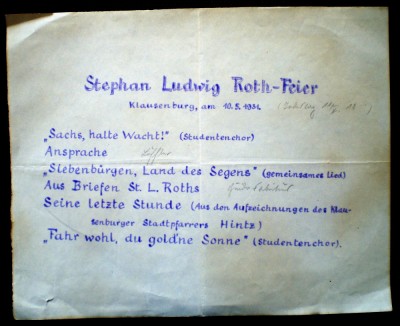 Stephan Ludwig Roth-Feier
Klausenburg, am 10.5.1931.
„Sachs, halte Wacht!" (Studentenchor)
Ansprache
„Siebenbürgen, Land des Segens" (gemeinsames Lied)
Aus Briefen St. L. Roths
Seine letzte Stunde (Aus den Aufzeichnungen des Klau-
senburger Stadtpfarrers Hintz)
„Fahr wohl, du gold'ne Sonne" (Studentenchor).